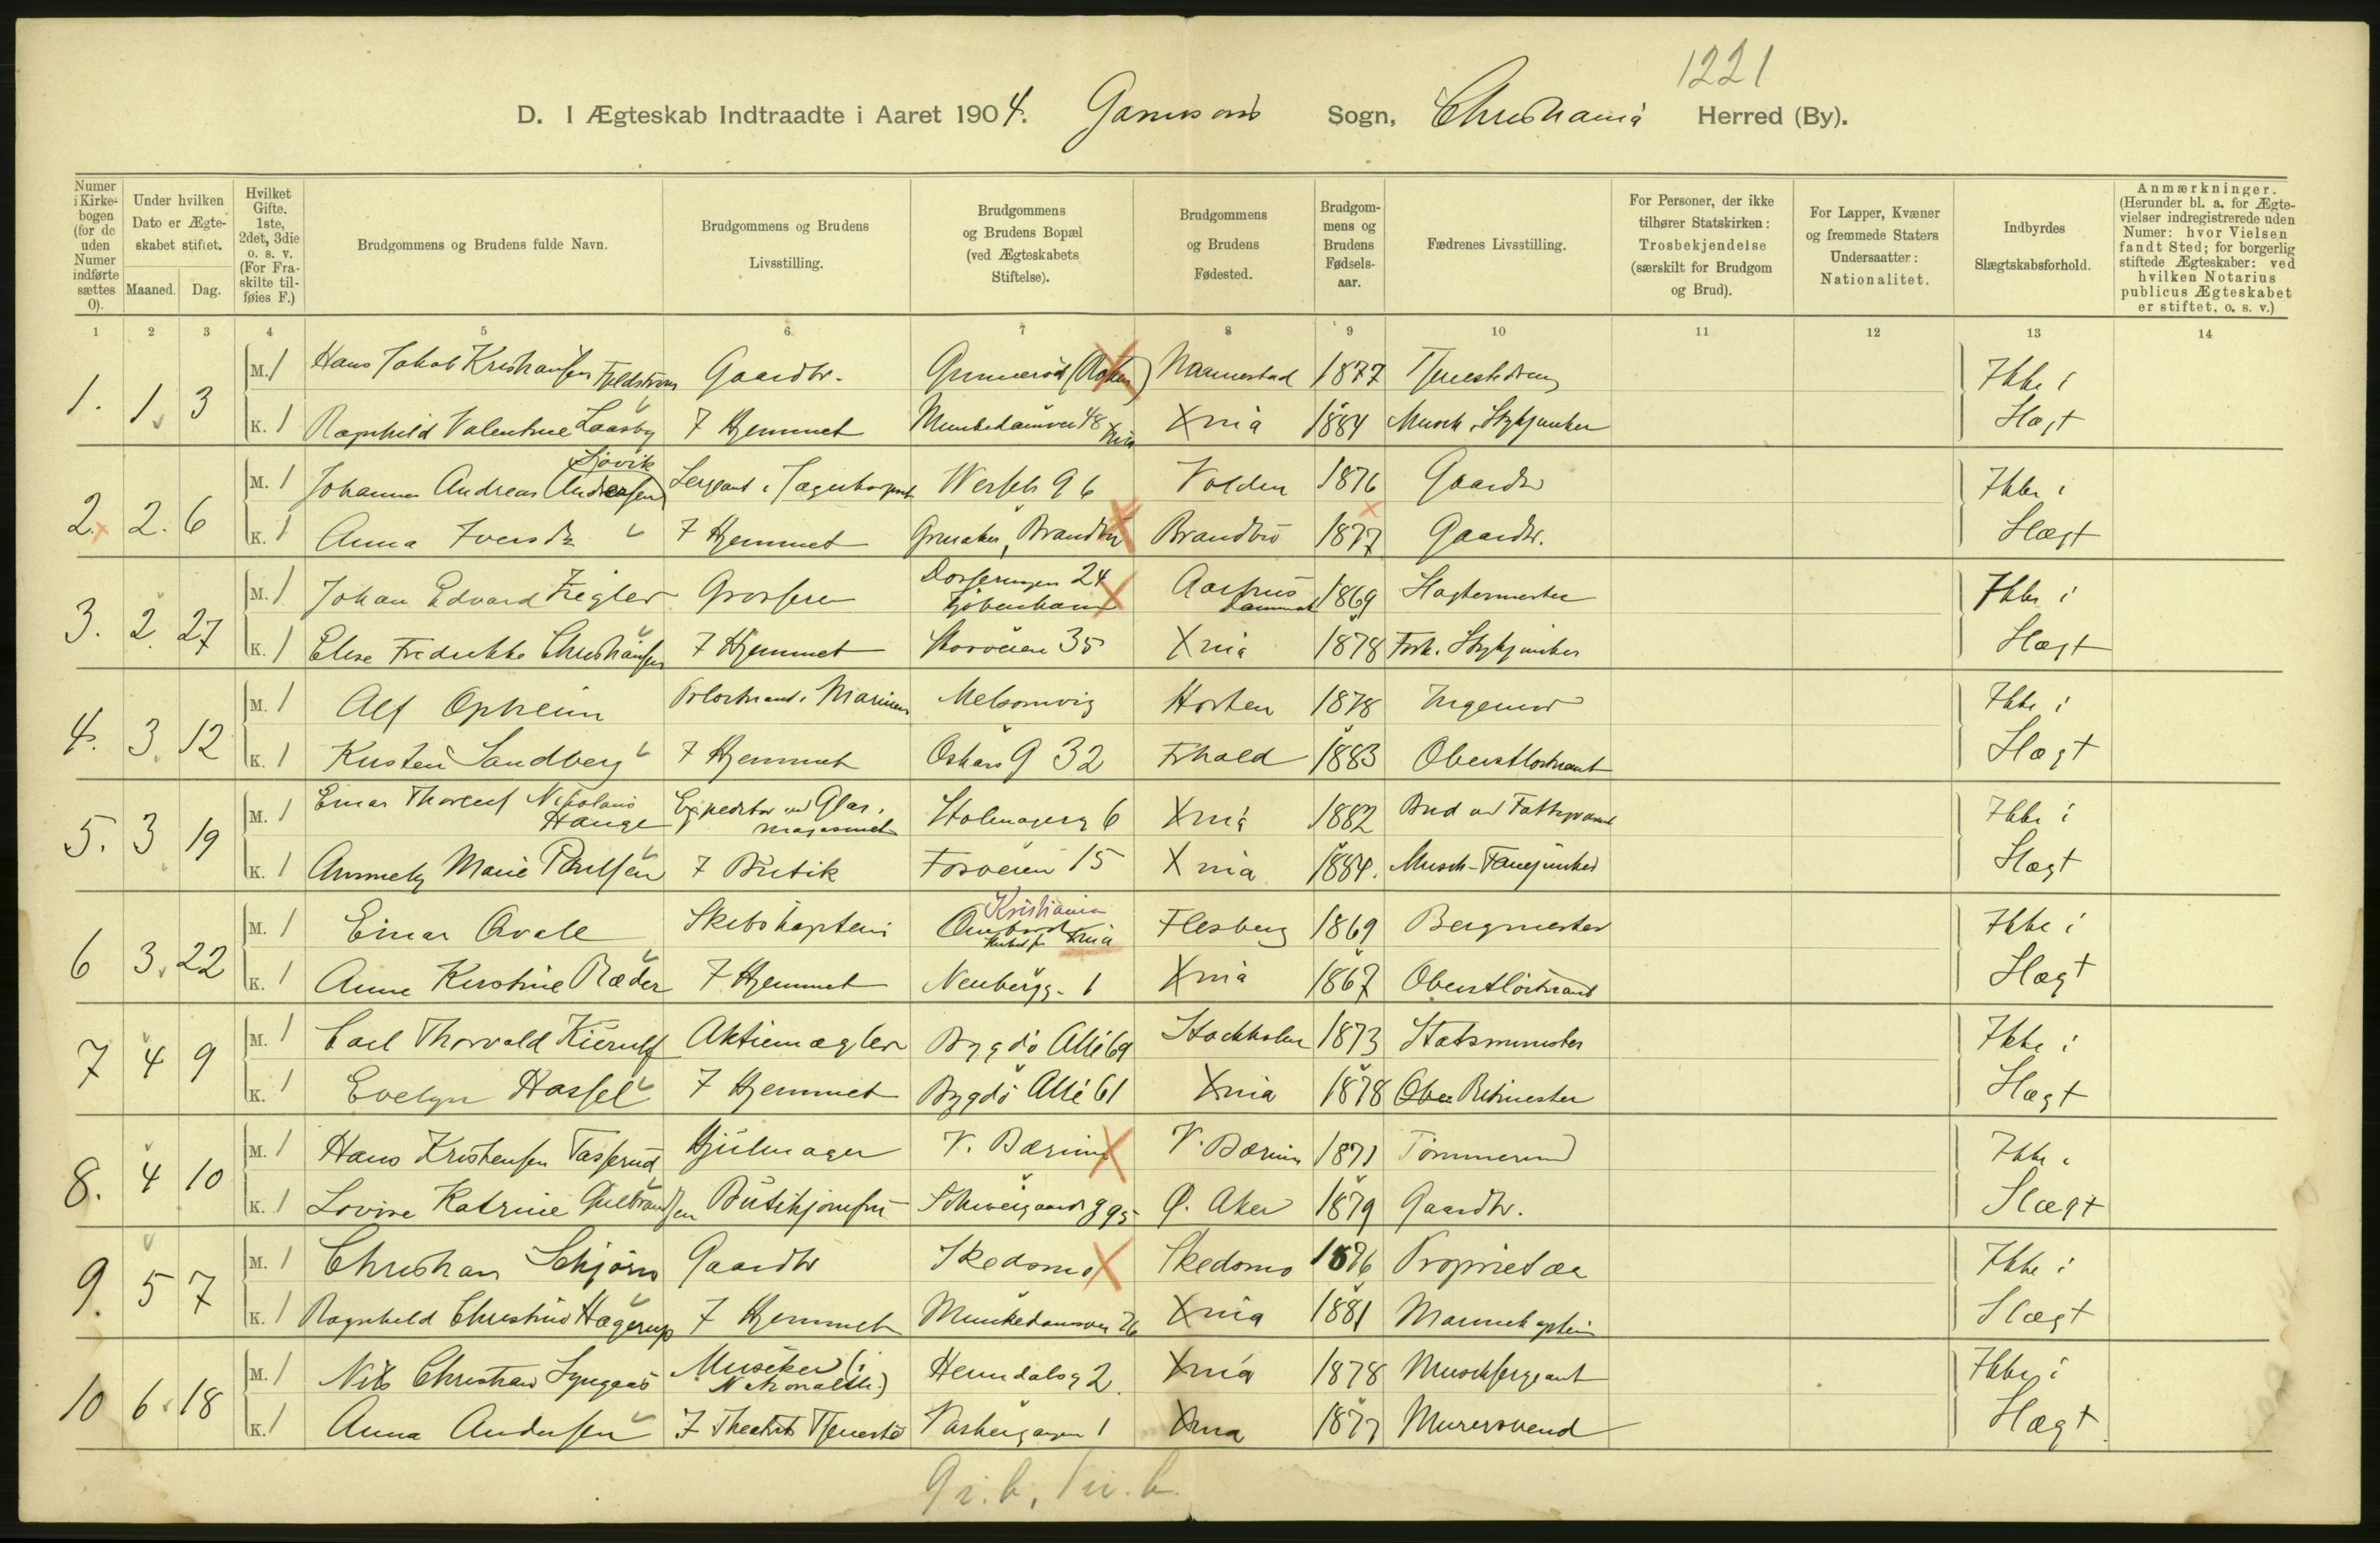 1221
D. I Ægteskab Indtraadte i Aaret 1904. Garnisons Sogn, Christiania Herred (By).
Numer i Kirkebogen (for de uden Numer indførte sættes 0).
Under hvilken Dato er Ægteskabet stiftet.
Maaned. Dag.
Hvilket Gifte. 1ste, 2det, 3die o. s. v. (For Fraskilte tilføies F.)
Brudgommens og Brudens fulde Navn.
Brudgommens og Brudens Livsstilling.
Brudgommens og Brudens Bopæl (ved Ægteskabets Stiftelse).
Brudgommens og Brudens Fødested.
Brudgommens og Brudens Fødselsaar.
Fædrenes Livsstilling.
For Personer, der ikke tilhører Statskirken: Trosbekjendelse (særskilt for Brudgom og Brud).
For Lapper, Kvæner og fremmede Staters Undersaatter: Nationalitet.
Indbyrdes Slægtskabsforhold.
Anmærkninger. (Herunder bl. a. for Ægtevielser indregistrerede uden Numer: hvor Vielsen fandt Sted; for borgerlig stiftede Ægteskaber: ved hvilken Notarius publicus Ægteskabet er stiftet, o. s. v.)
1 2 3 4 5 6 7 8 9 10 11 12 13 14
1. 1. 3 M. 1 Hans Jakob Kristiansen Gaardbr. 1877 Ikke i
K. 1 Ragnhild Valentine Laasby I Hjemmet Munkedamsvei 48 Xnia Xnia 1884 Musik. Stykjunker Slægt
2. 2. 6 M. 1 Johannes Andreas (Andreasen) Sjøvik Sergeant i Jægerkorpset Wessels g 6 Volden 1876 Gaardbr Ikke i
K. 1 Anna Iversdtr I Hjemmet Brandbu Brandbu 1877 Gaardbr. Slægt
3. 2. 27 M. 1 Johan Edvard Ziegler Grosserer Dosseringen 24 Kjøbenhavn Aarhus Danmark 1869 Slagtermester Ikke i
K. 1 Elise Fredrikke Christiansen I Hjemmet Storveien 35 Xnia 1878 Fork. Stykjunker Slægt
4. 3. 12 M. 1 Alf Opheim Melsomvig Horten 1878 Ingeniør Ikke i
K. 1 Kirsten Sandberg I Hjemmet Oskars g 32 Frhald 1883 Oberstløitnant Slægt
5. 3 19 M. 1 Einar Thorleif Nikolaus Hauge Expeditør ved Glasmagasinet Stolmagerg 6 Xnia 1882 Bud ved Fattigvæsenet Ikke i
K. 1 Marie Paulsen I Butik Fosveien 15 Xnia 1884. Musik-Fanejunker Slægt
6 3. 22 M. 1 Einar Qvale Skibskaptein Kristiania Xnia Flesberg 1869 Bergmester Ikke i
K. 1 Anne Kirstine Ræder I Hjemmet Neubergg. 1 Xnia 1867 Oberstløitnant Slægt
7 4 9 M. 1 Carl Thorvald Kierulf Aktiemægler Bygdø Allé 69 Stockholm 1873 Statsminister Ikke i
K. 1 Evelyn Hassel I Hjemmet Bygdø Allé 61 Xnia 1878 Ritmester Slægt
8. 4 10 M. 1 Hans Kristensen Tasserud Hjulmager V. Bærum V. Bærum 1871 Tømmermd Ikke i
K. 1 Lovise Katrine Gulbrandsen Butikjomfru Schweigaards g 95 Ø. Aker 1879 Gaardbr. Slægt
9. 5 7 M. 1 Christian Schjørn Gaardbr Skedsmo Skedsmo 1876 Proprietær Ikke i
K. 1 Ragnhild Christine Hagerup I Hjemmet Munkedamsvei 26 Xnia 1881 Marinekaptein Slægt
10 6. 18 M. 1 Nils Christian Lyngaas Musiker (i Nationalth.) Heimdalsg 2. Xnia 1878 Musiksergeant Ikke i
K. 1 Anna Andersen I Theatrets Tjeneste 1 Xnia 1877 Murersvend Slægt